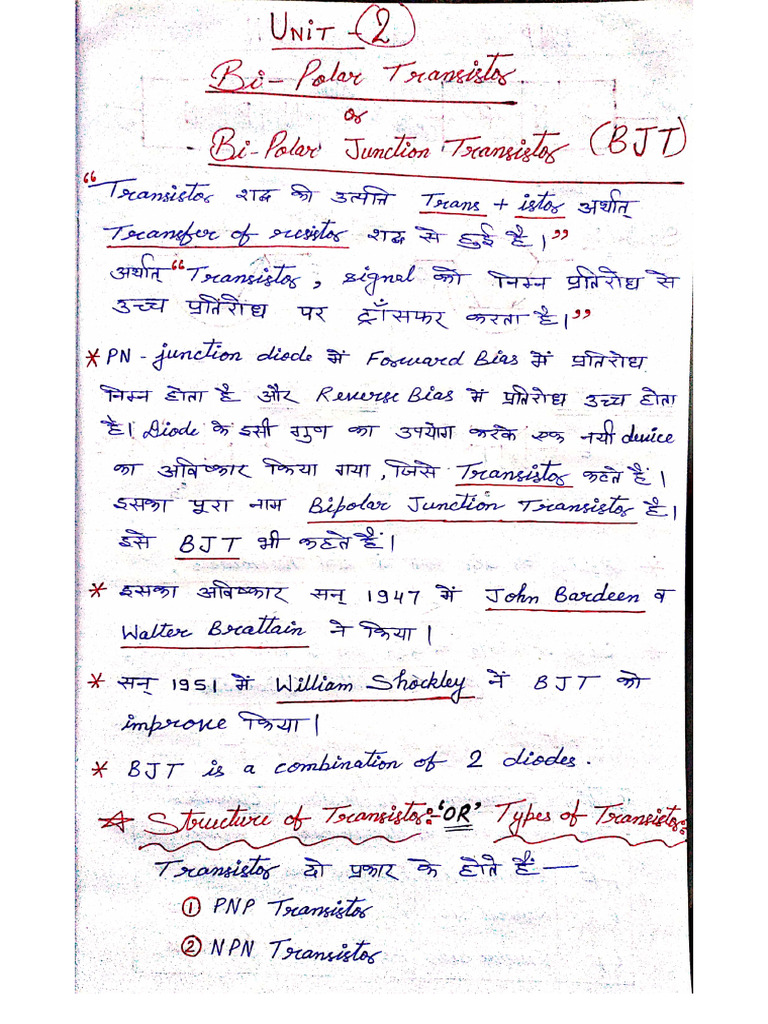 UNIT - 2
Bi-Polar Transistor
or
Bi-Polar Junction Transistor (BJT)
"Transistor शब्द की उत्पत्ति Trans + istor अर्थात्
Transfer of resistor शब्द से हुई है।"
अर्थात् "Transistor, signal को निम्न प्रतिरोध से
उच्च प्रतिरोध पर ट्राँसफर करता है।"
* PN-junction diode में Forward Bias में प्रतिरोध
निम्न होता है और Reverse Bias में प्रतिरोध उच्च होता
है। Diode के इसी गुण का उपयोग करके एक नयी device
का अविष्कार किया गया, जिसे Transistor कहते हैं।
इसका पूरा नाम Bipolar Junction Transistor है।
इसे BJT भी कहते हैं।
* इसका अविष्कार सन् 1947 में John Bardeen व
Walter Brattain ने किया।
* सन् 1951 में William Shockley नें BJT को
improve किया।
* BJT is a combination of 2 diodes.
☆ Structure of Transistor:- 'OR' Types of Transistor:
Transistor दो प्रकार के होते हैं—
① PNP Transistor
② NPN Transistor